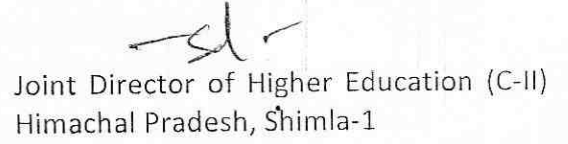 -sd-
Joint Director of Higher Education (C-II)
Himachal Pradesh, Shimla-1